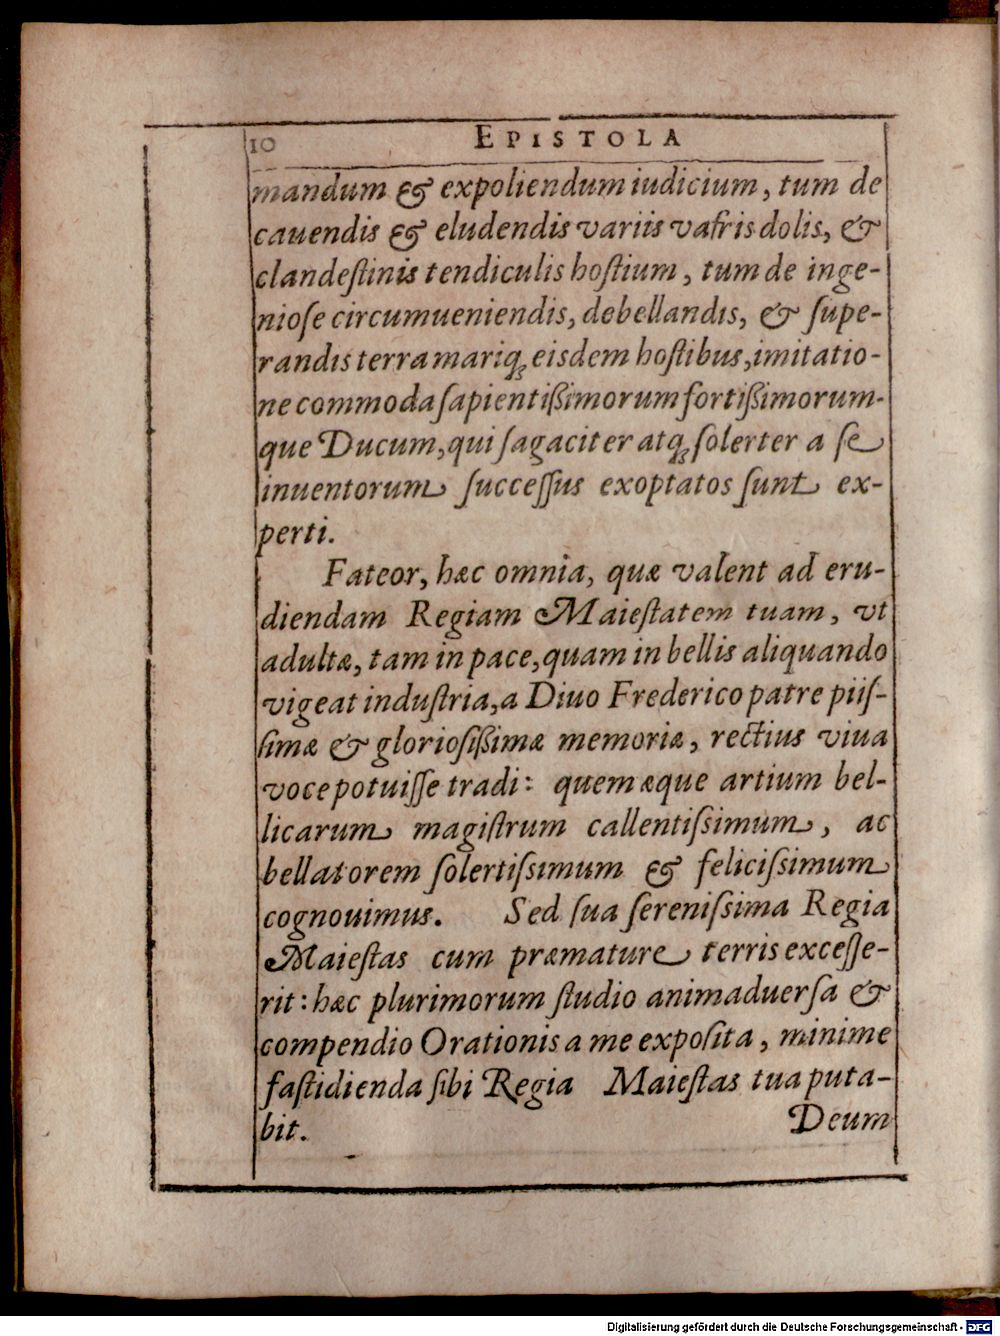 10
EPISTOLA
mandum & expoliendum iudicium, tum de
cauendis & eludendis variis vafris dolis, &
clandeſtinis tendiculis hoſtium, tum de inge-
nioſe circumueniendis, debellandis, & ſupe-
randis terra mariq́ꝫ eisdem hoſtibus, imitatio-
ne commoda ſapientiſsimorum fortiſsimorum-
que Ducum, qui ſagaciter atqꝫ ſolerter a ſe
inuentorum ſucceſſus exoptatos ſunt ex-
perti.
Fateor, hæc omnia, quæ valent ad eru-
diendam Regiam Maieſtatem tuam, vt
adultæ, tam in pace, quam in bellis aliquando
vigeat induſtria, a Diuo Frederico patre piiſ-
ſimæ & glorioſiſsimæ memoriæ, rectius viua
voce potuiſſe tradi: quem æque artium bel-
licarum magiſtrum callentiſsimum, ac
bellatorem ſolertiſsimum & feliciſsimum
cognouimus. Sed ſua ſereniſsima Regia
Maieſtas cum præmature terris exceſſe-
rit: hæc plurimorum ſtudio animaduerſa &
compendio Orationis a me expoſita, minime
faſtidienda ſibi Regia Maieſtas tua puta-
bit.
Deum
Digitalisierung gefördert durch die Deutsche Forschungsgemeinschaft - DFG